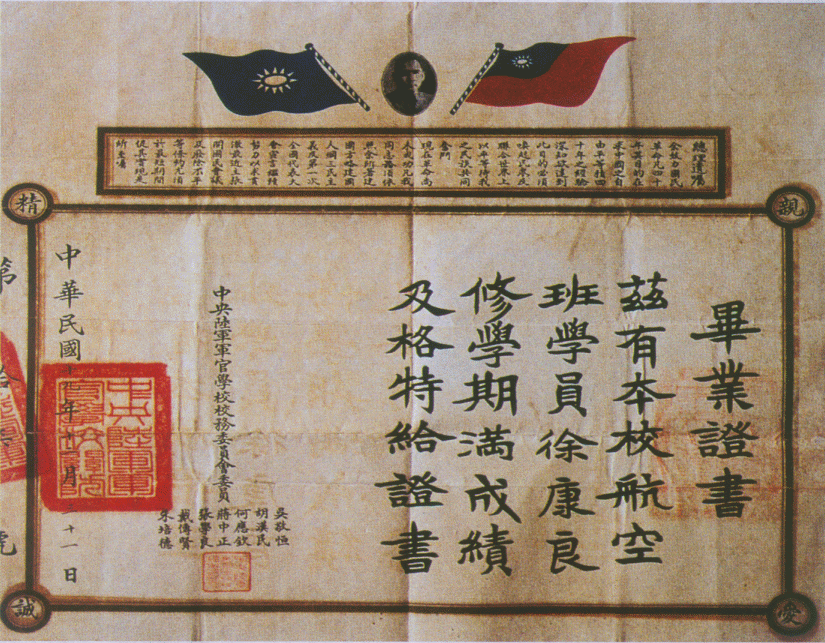 總理遺囑
余致力國民
革命凡四十
年其目的在
求中國之自
由平等積四
十年之經驗
深知欲達到
此目的必須
喚起民眾及
聯合世界上
以平等待我
之民族共同
奮鬥
現在革命尚
未成功凡我
同志務須依
照余所著建
國方略建國
大綱三民主
義及第一次
全國代表大
會宣言繼續
努力以求貫
澈最近主張
開國民會議
及廢除不平
等條約尤須
於最短期間
促其實現是
所至囑
親
愛
精
誠
畢業證書
茲有本校航空
班學員徐康良
修學期滿成績
及格特給證書
中央陸軍軍官學校校務委員會委員
吳敬恒
胡漢民
何應欽
蔣中正
張學良
戴傳賢
朱培德
中華民國年十月二十一日
中央陸軍軍
官學校關防
第拾號